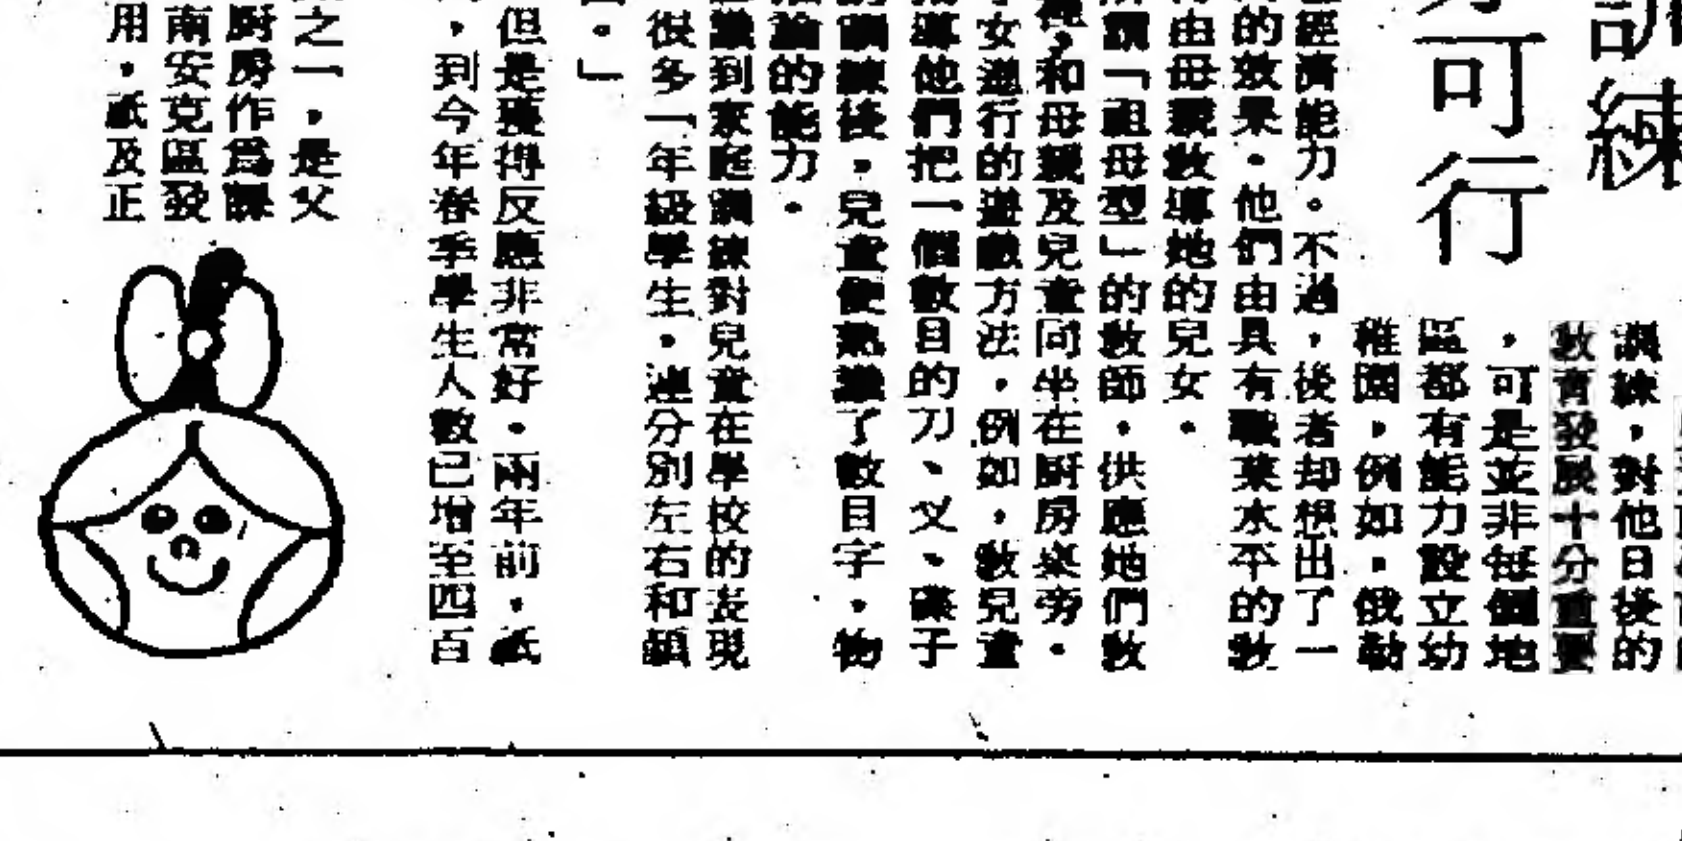 訓練
可行
訓練，對他日後的
教育發展十分重要
，可是並非每個地
區都有能力設立幼
稚園，例如，俄勒
經濟能力。不過，後者却想出了一
的效果。他們由具有職業水平的教
由母親教導她的兒女。
謂「祖母型」的教師，供應她們教
，和母親及兒童同坐在厨房桌旁，
女進行的遊戲方法，例如，教兒童
導他們把一個數目的刀、义、碟子
訓練後，兒童便熟識了數目字，物
論的能力。
識到家庭訓練對兒童在學校的表現
很多「年級學生，連分別左右和顏
。」
但是獲得反應非常好。兩年前，祇
，到今年春季學生人數已增至四百
之一，是父
厨房作爲課
南安克區發
用，祇及正